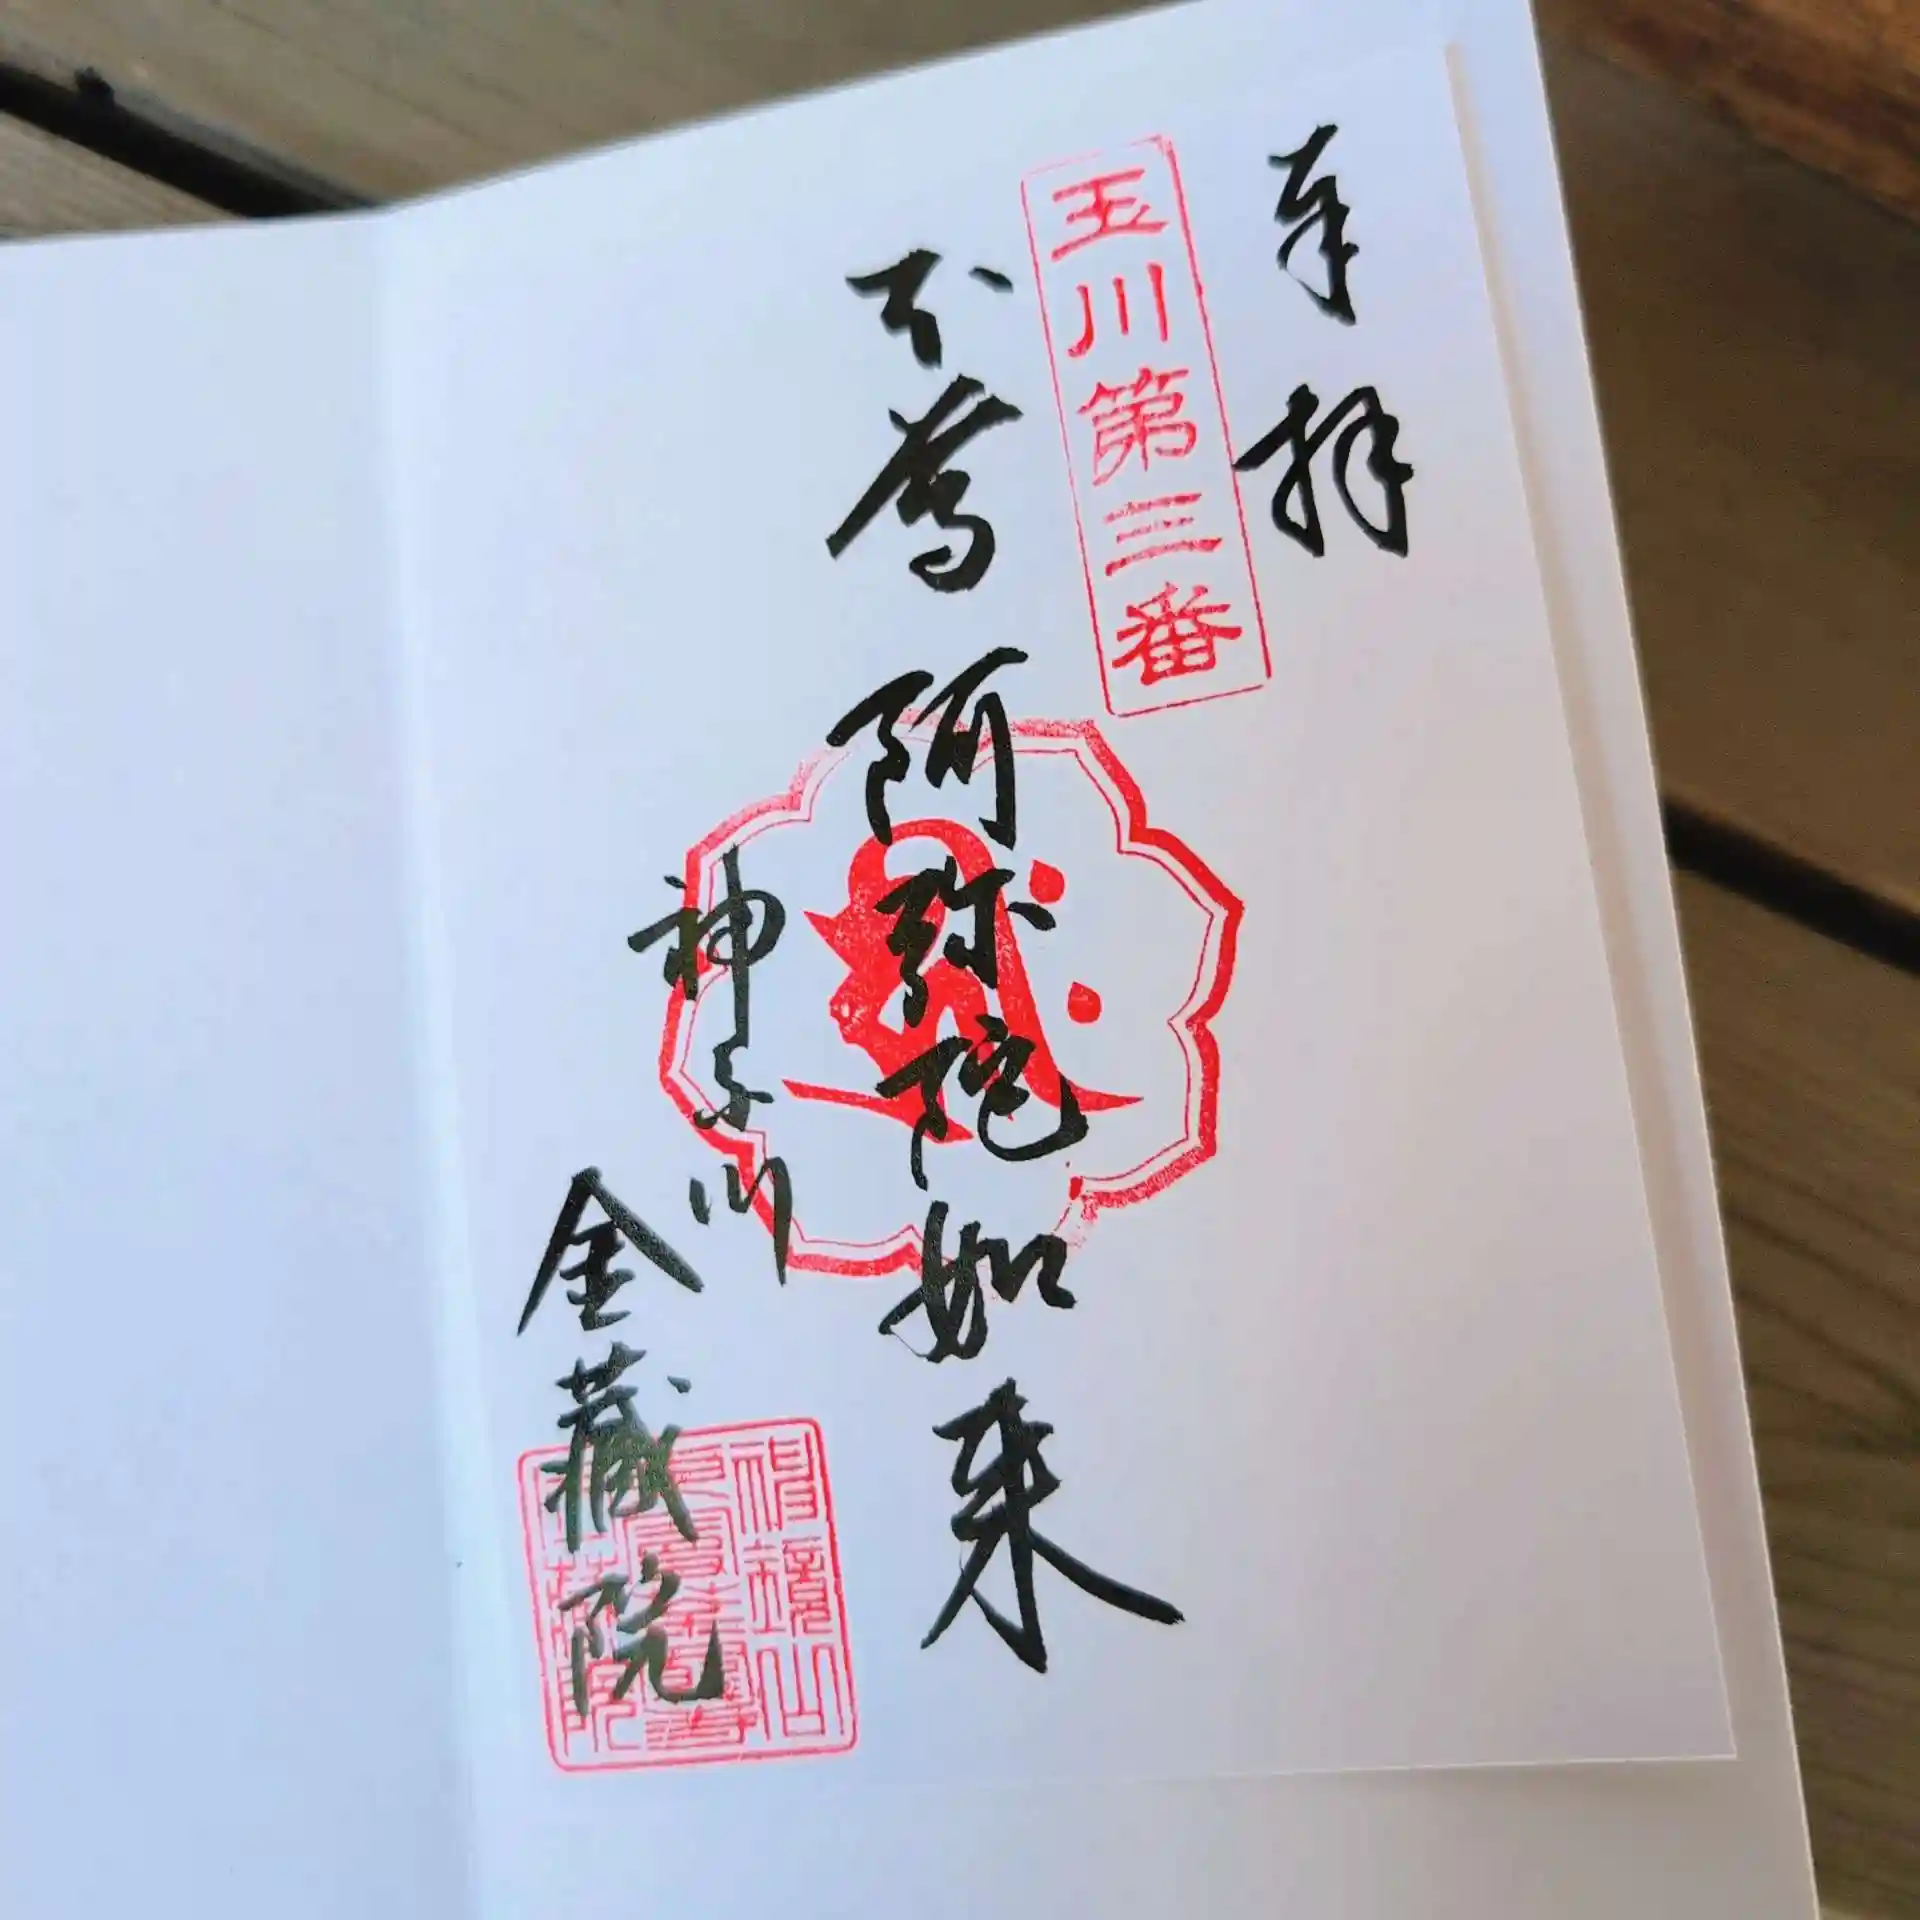 奉拝
玉川第三番
本尊 阿弥陀如来
神奈川
金蔵院
神鏡山